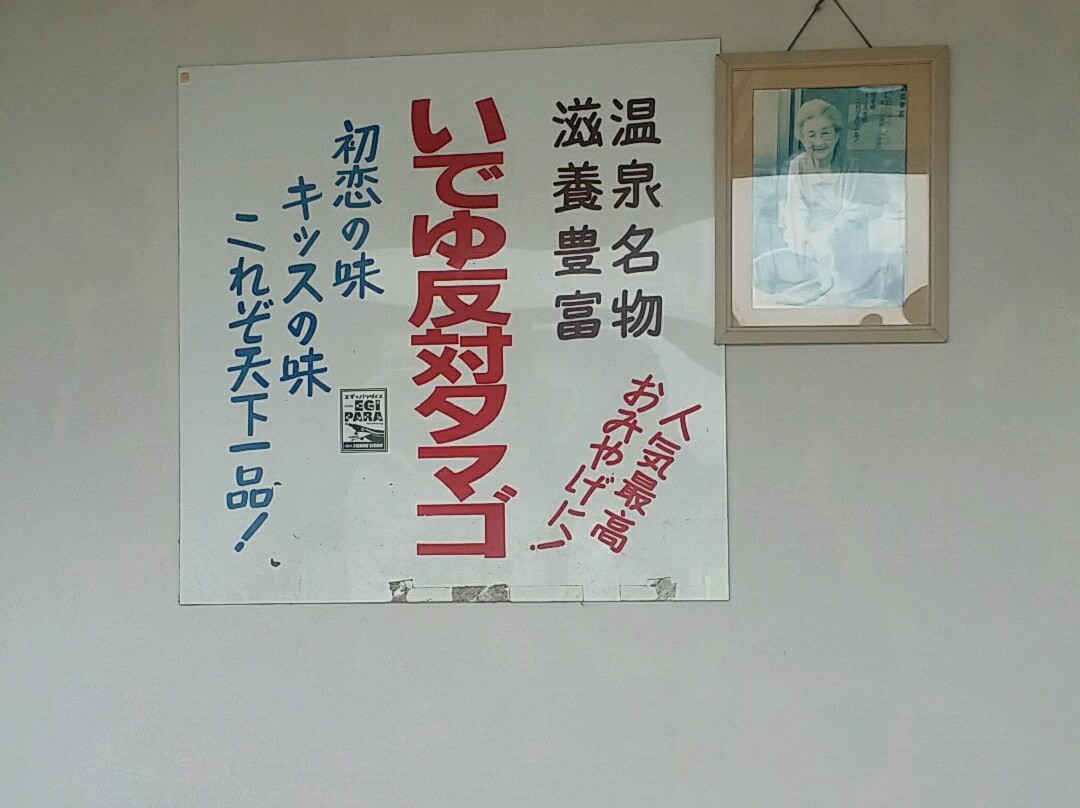 温泉名物
滋養豊富
人気最高
おみやげに!
いでゆ反対タマゴ
初恋の味
キッスの味
これぞ天下一品!
エギ・パラダイス
EGI
PARA